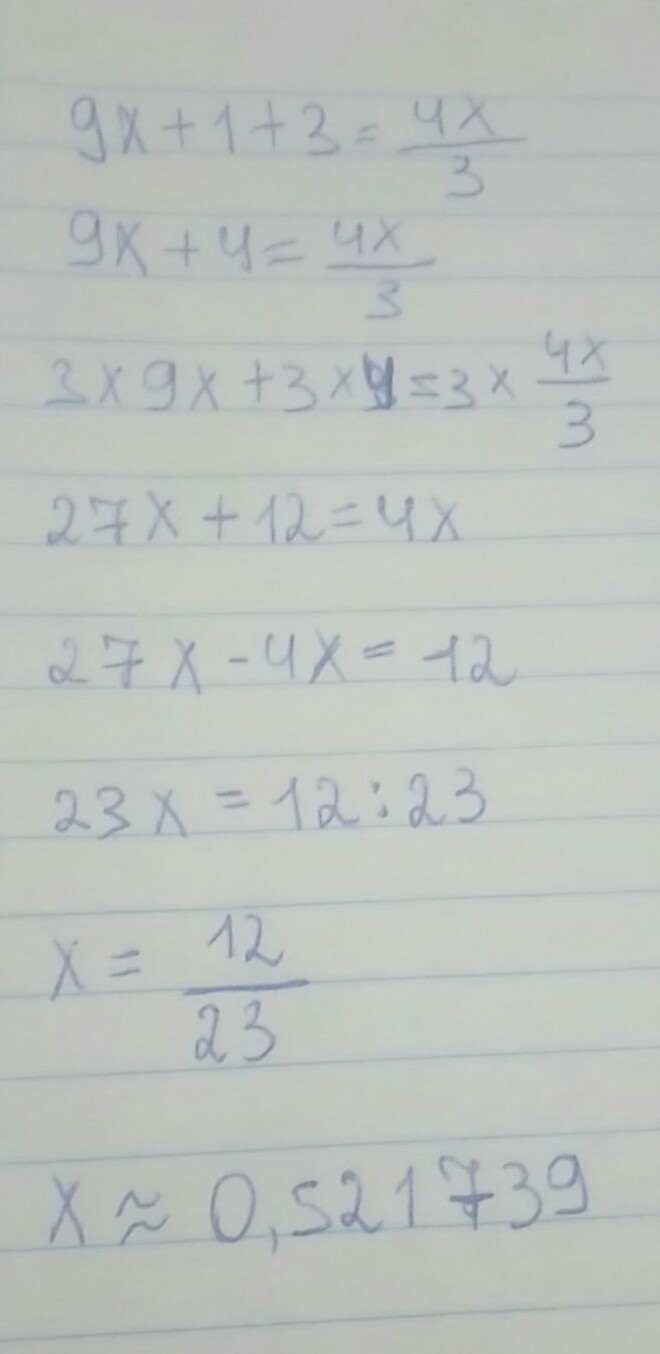 9x+1+3=4x/3
9x+4=4x/3
3×9x+3×4=3×4x/3
27x+12=4x
27x-4x=12
23x=12:23
x=12/23
x≈0,521739